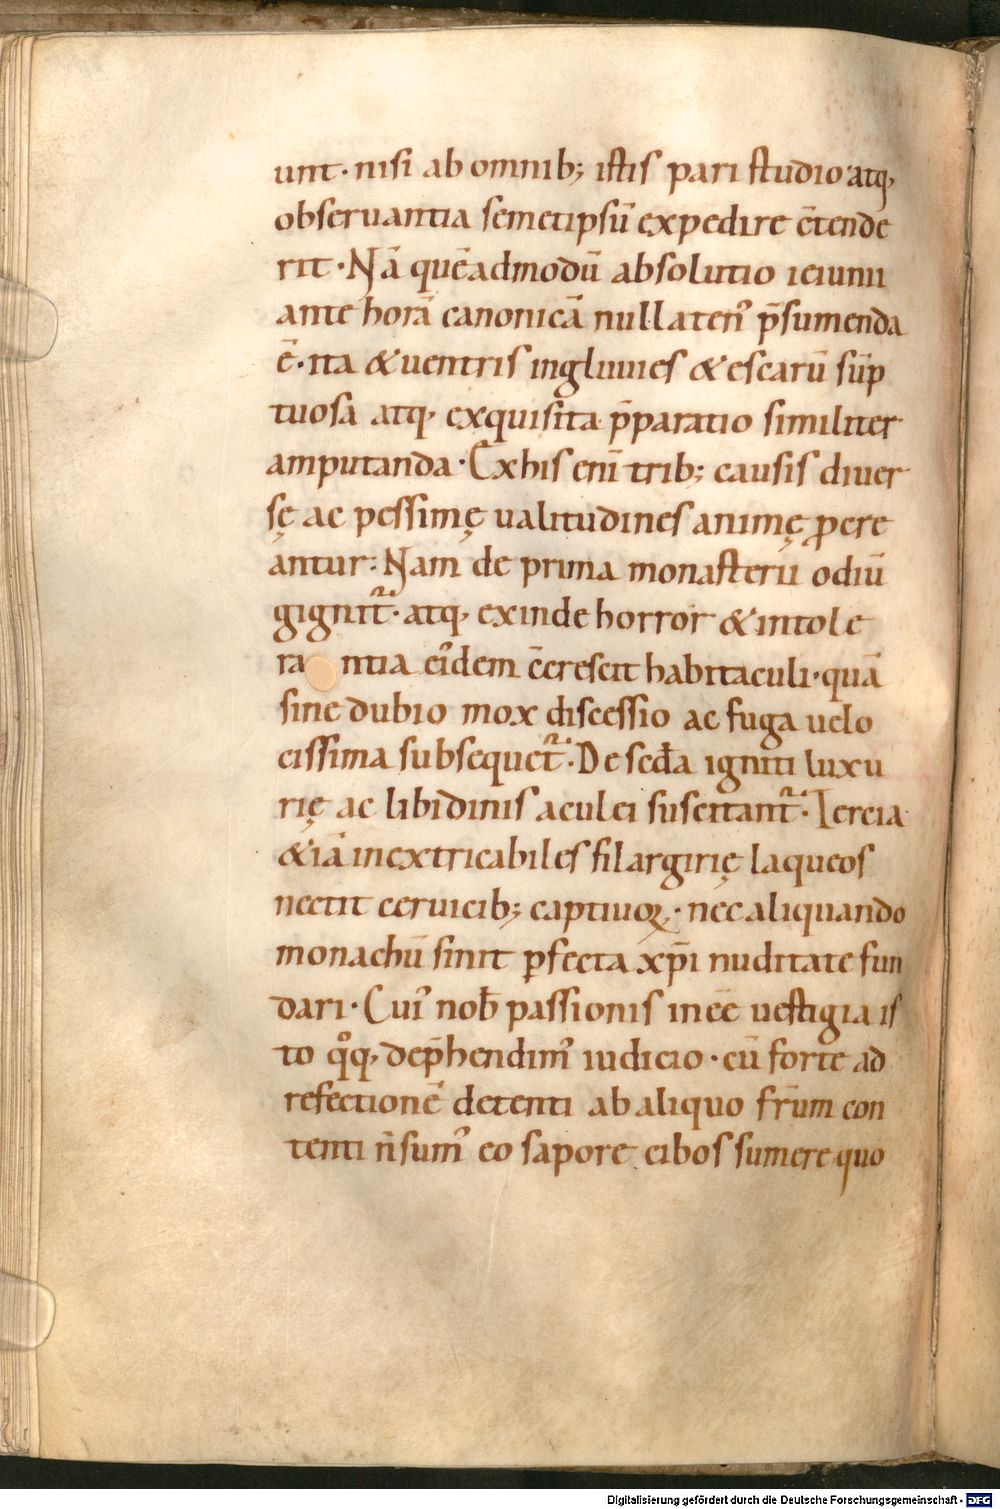 unt · nisi ab omnib; istis pari studio atq,
obseruantia semetipsū expedire c̄tende
rit · Nā quēadmodū absolutio ieiunii
ante horā canonicā nullaten᾿ p̄sumenda
ē · ita & uentris ingluuies & escarū sūp
tuosa atq, exquisita p̄paratio similiter
amputanda · Ex his eni᾿ trib; causis diuer
sę ac pessimę ualitudines animę ꝓcre
antur : Nam de prima monasterii odiū
gignit᷑ · atq, exinde horror & intole
ra ntia ei᾿dem c̄crescit habitaculi · quā
sine dubio mox discessio ac fuga uelo
cissima subsequet᷑ · De sc̄da igniti luxu
rię ac libidinis aculei suscitant᷑ · Tercia
& iā inextricabiles filargirię laqueos
nectit ceruicib; captiuoꝝ · nec aliquando
monachū sinit ꝑfecta xp̄i nuditate fun
dari · Cui᾿ nob̄ passionis inēē uestigia is
to qͦq, dep̄hendim᾿ iudicio · cū forte ad
refectionē detenti ab aliquo fr̄um con
tenti n̄ sum᾿ eo sapore cibos sumere quo
Digitalisierung gefördert durch die Deutsche Forschungsgemeinschaft - DFG